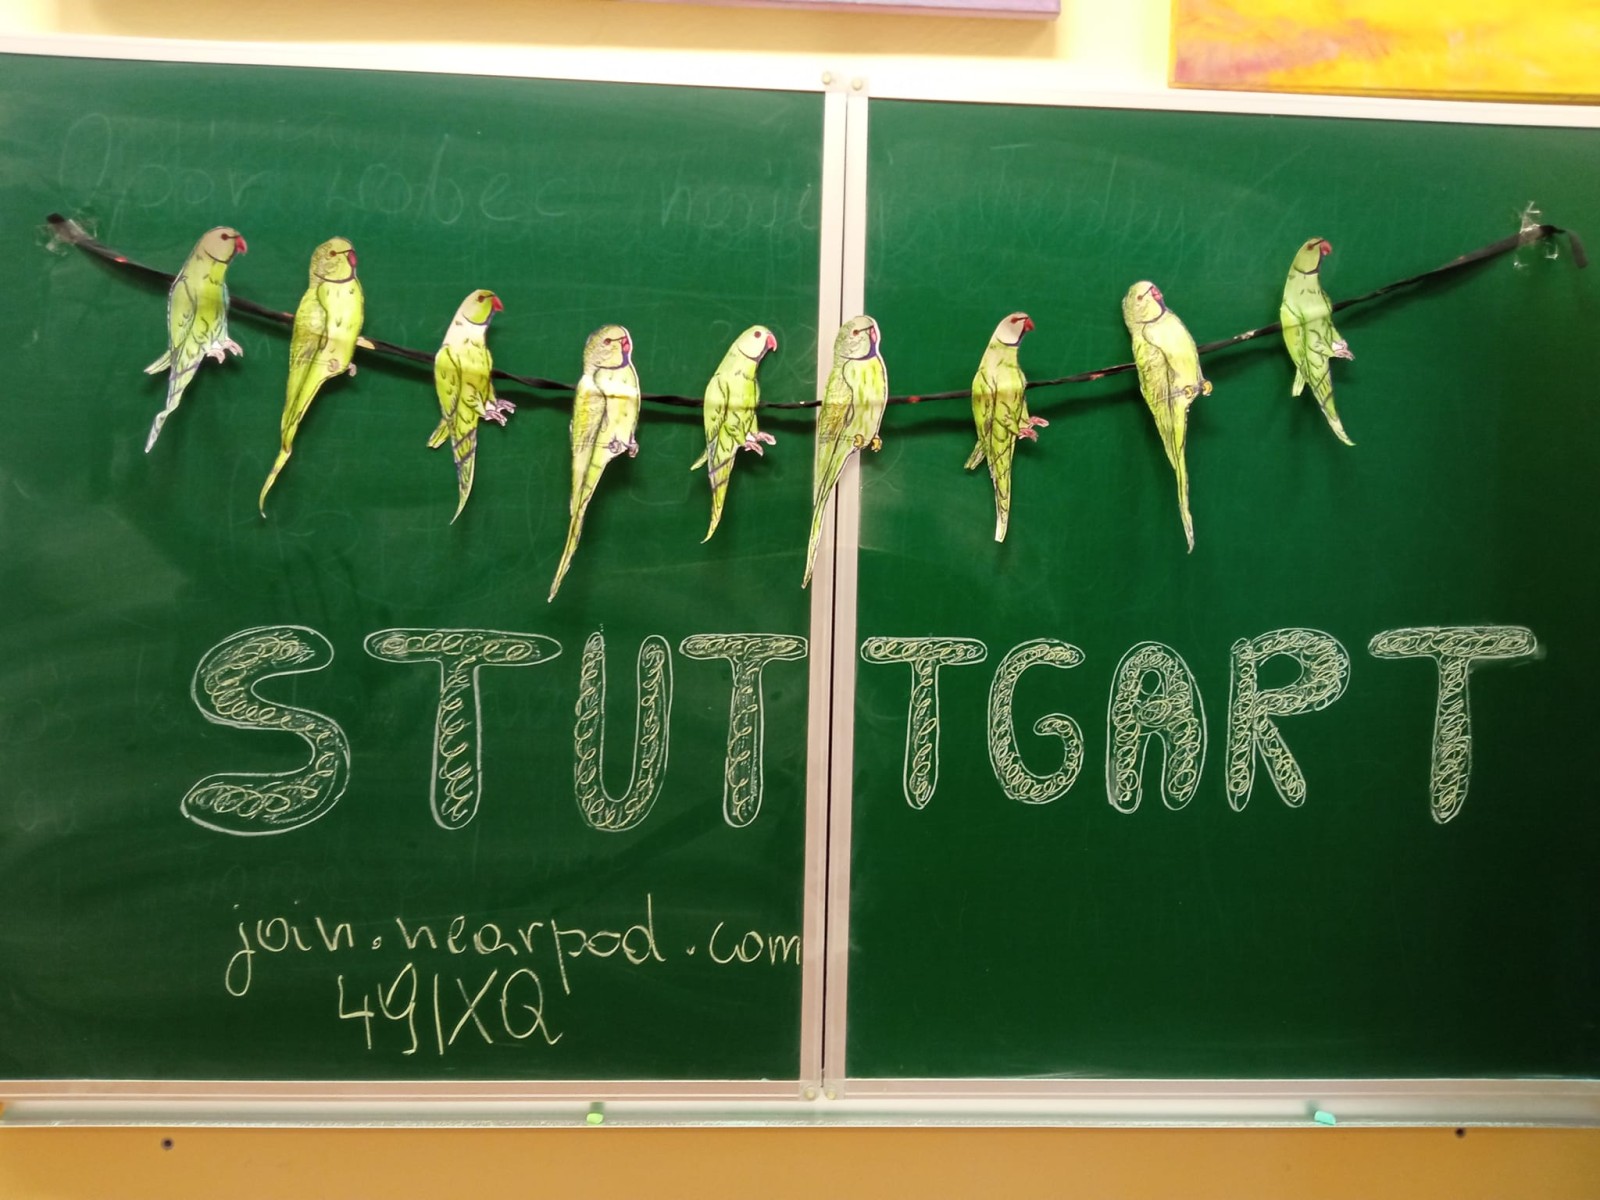 STUTTGART
join.nearpod.com
49IXQ